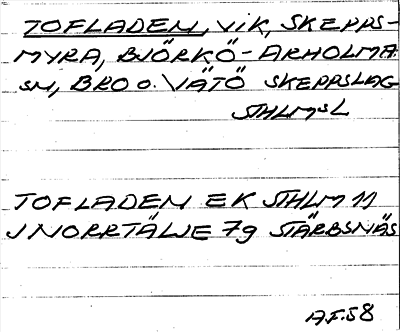 TOFLADEN, VIK, SKEPPS-
MYRA, BJÖRKÖ-ARHOLMA
SN, BRO O. VÄTÖ SKEPPSLAG
STHLMSL
TOFLADEN EK STHLM 11
J NORRTÄLJE 7g STÄRBSNÄS
A.F.58